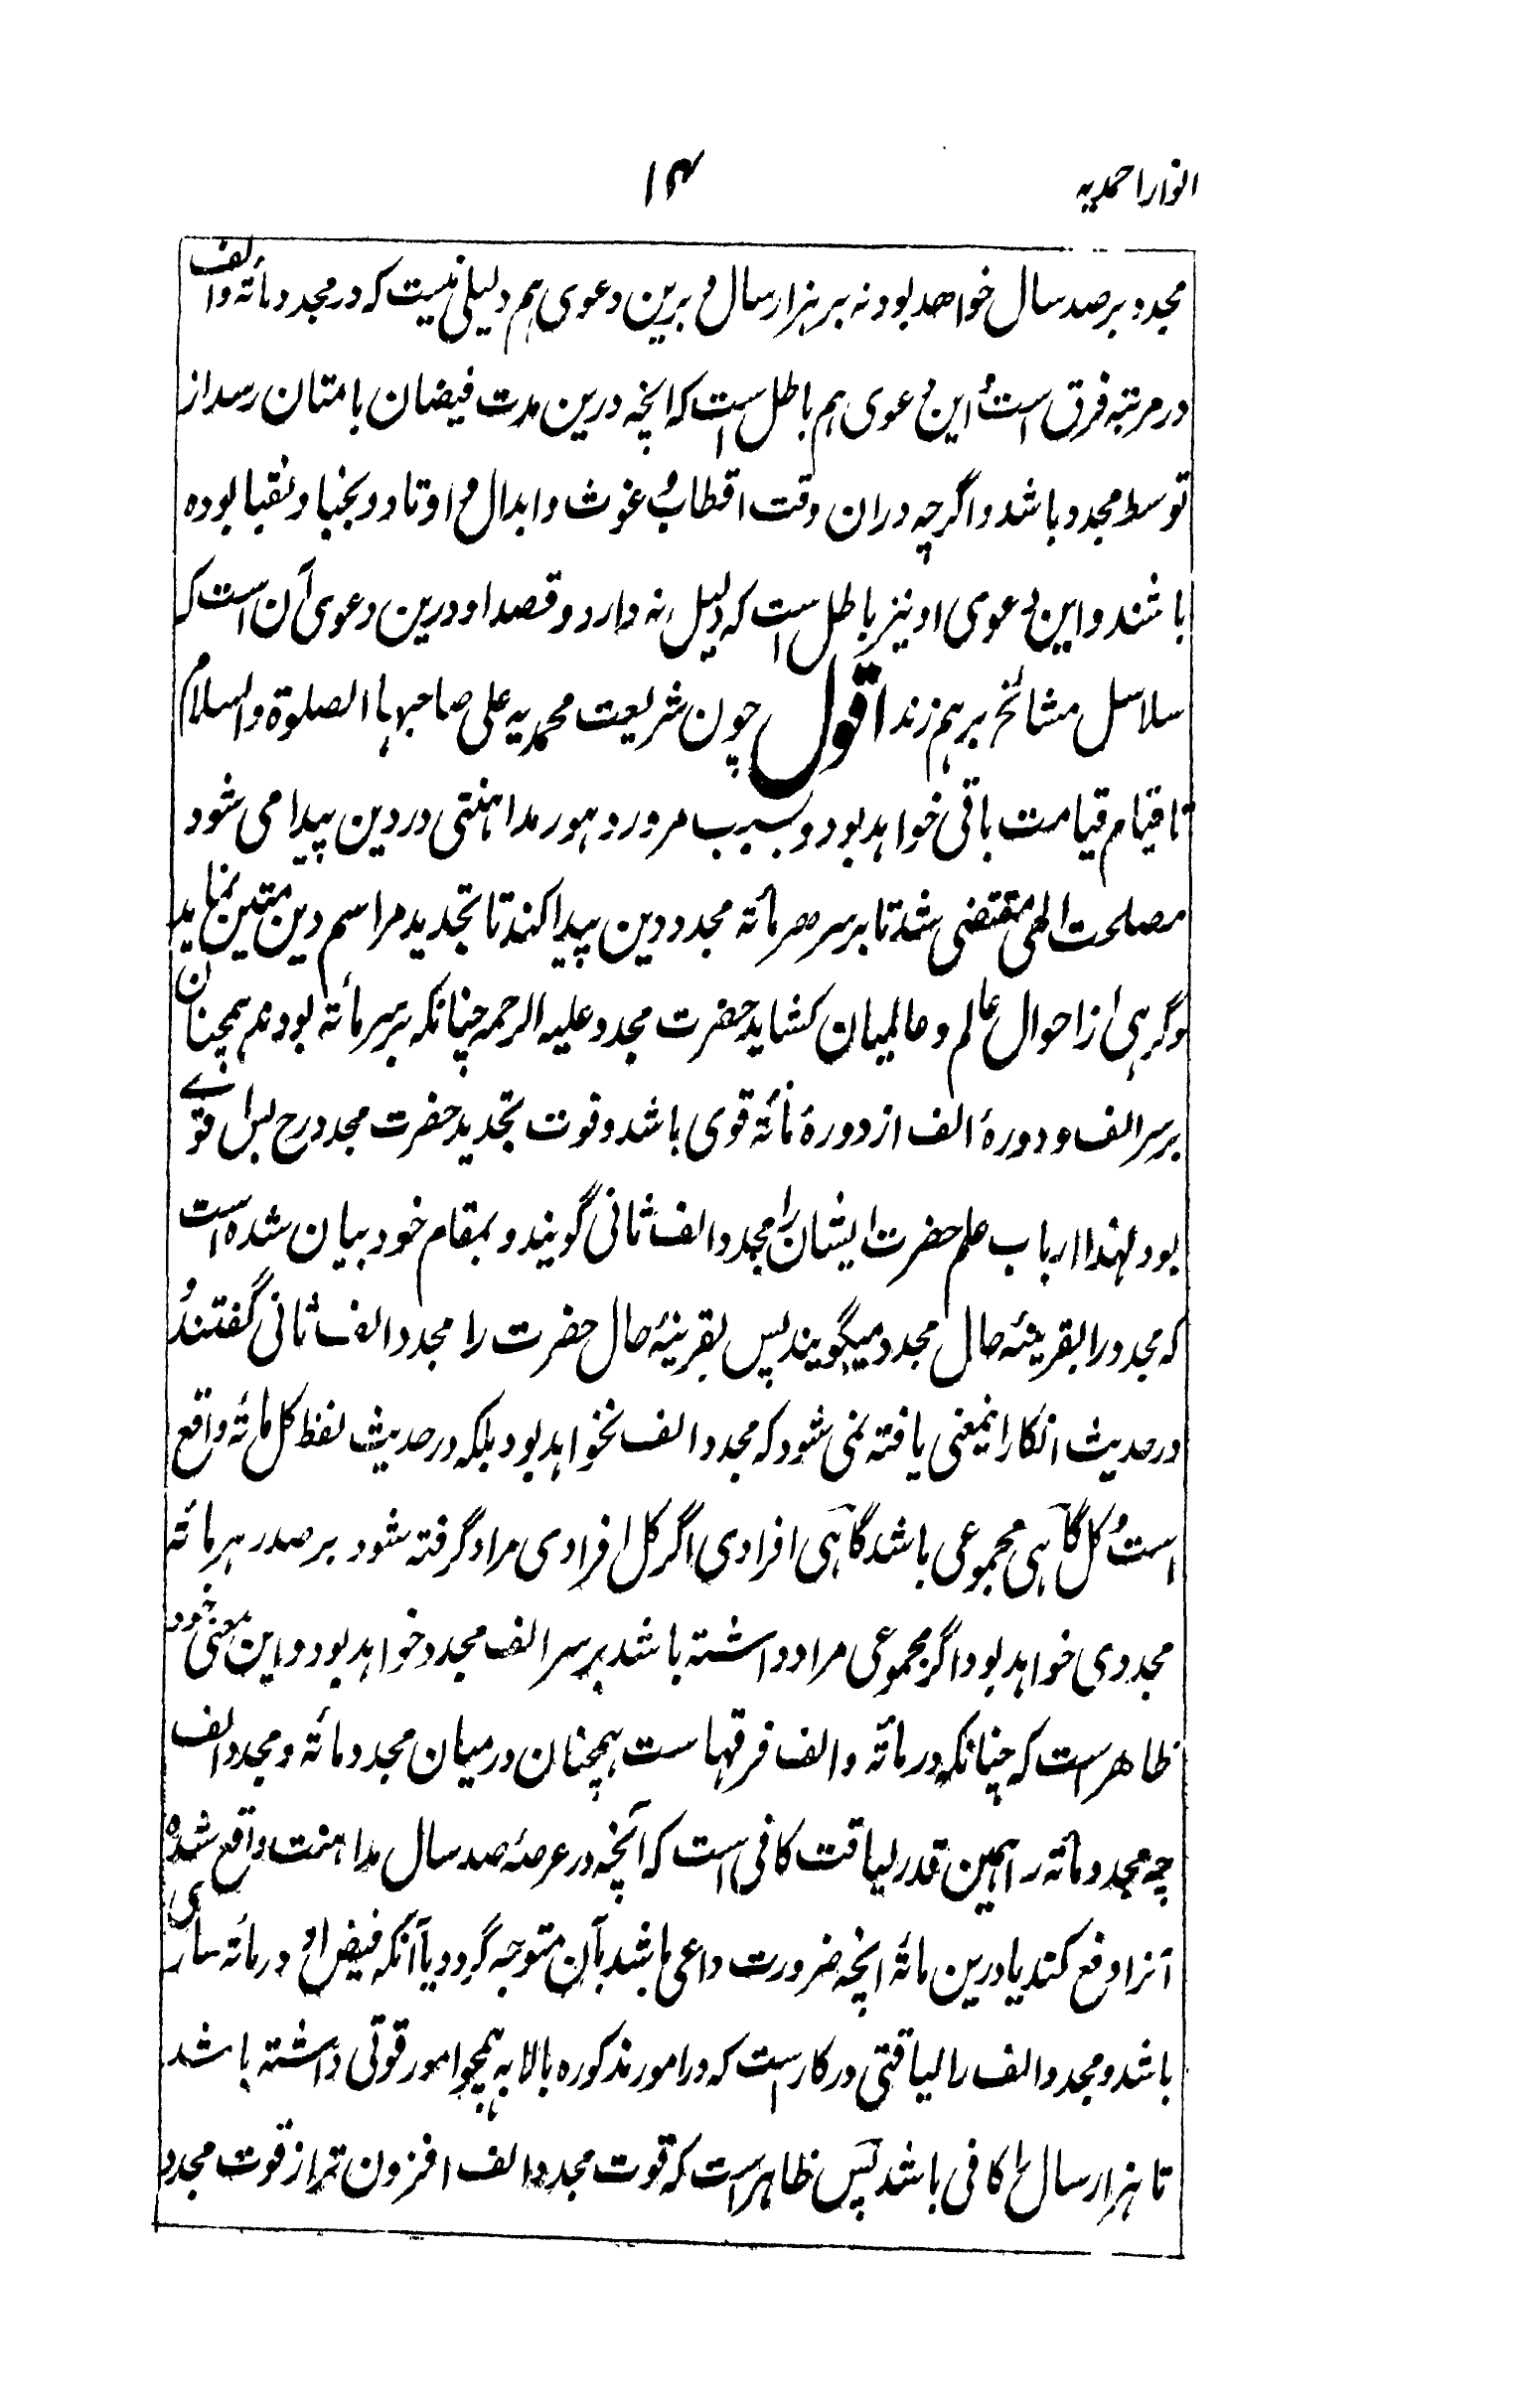 انوار احمدیه ۱۴
مجدد بر صد سال خواهد بود نه بر هزار سال و برین دعوی هم دلیلی نیست که در مجدد مائة و الف
در مرتبه فرق است و این دعوی هم باطل است که انچه درین مدت فیضان بامتان رسد از
توسط مجدد باشد و اگرچه دران وقت اقطاب و غوث و ابدال و اوتاد و نجبا و نقبا بوده
باشند و این دعوی او نیز باطل است که دلیل نه دارد و قصد او درین دعوی آن است که
سلاسل مشائخ برهم زند اقول چون شریعت محمدیه علی صاحبها الصلوة والسلام
تا قیام قیامت باقی خواهد بود و بسبب مرور دهور مداهنتی در دین پیدا می شود
مصلحت الهی مقتضی شد تا بر سر هر مائة مجدد دین پیدا کند تا تجدید مراسم دین متین نماید
و گرهی از احوال عالم و عالمیان کشاید حضرت مجدد علیه الرحمه چنانکه بر سر مائة بودند همچنان
بر سر الف و دورۀ الف از دورۀ مائة قوی باشد و قوت تجدید حضرت مجدد رح بس قوی
بود لهذا ارباب علم حضرت ایشان را مجدد الف ثانی گویند و بمقام خود بیان شده است
که مجدد را بقرینۀ حال مجدد میگویند پس بقرینۀ حال حضرت را مجدد الف ثانی گفتند و
در حدیث انکار اینمعنی یافته نمی شود که مجدد الف نخواهد بود بلکه در حدیث لفظ کل مائة واقع
است و کل گاهی مجموعی باشد گاهی افرادی اگر کل افرادی مراد گرفته شود بر صدر هر مائة
مجددی خواهد بود اگر مجموعی مراد داشته باشد بر سر الف مجدد خواهد بود و این معنی خود
ظاهر است که چنانکه در مائة و الف فرقهاست همچنان درمیان مجدد مائة و مجدد الف
چه مجدد مائة را همین قدر لیاقت کافی است که آنچه در عرصۀ صد سال مداهنت واقع شده
آنرا دفع کند یا درین مائة انچه ضرورت داعی باشد بآن متوجه گردد یا آنکه فیض او در مائة ساری
باشد و مجدد الف را لیاقتی درکار است که در امور مذکوره بالا به همچو امور قوتی داشته باشد
تا هزار سال را کافی باشد پس ظاهر است که قوت مجدد الف افزون تر از قوت مجدد